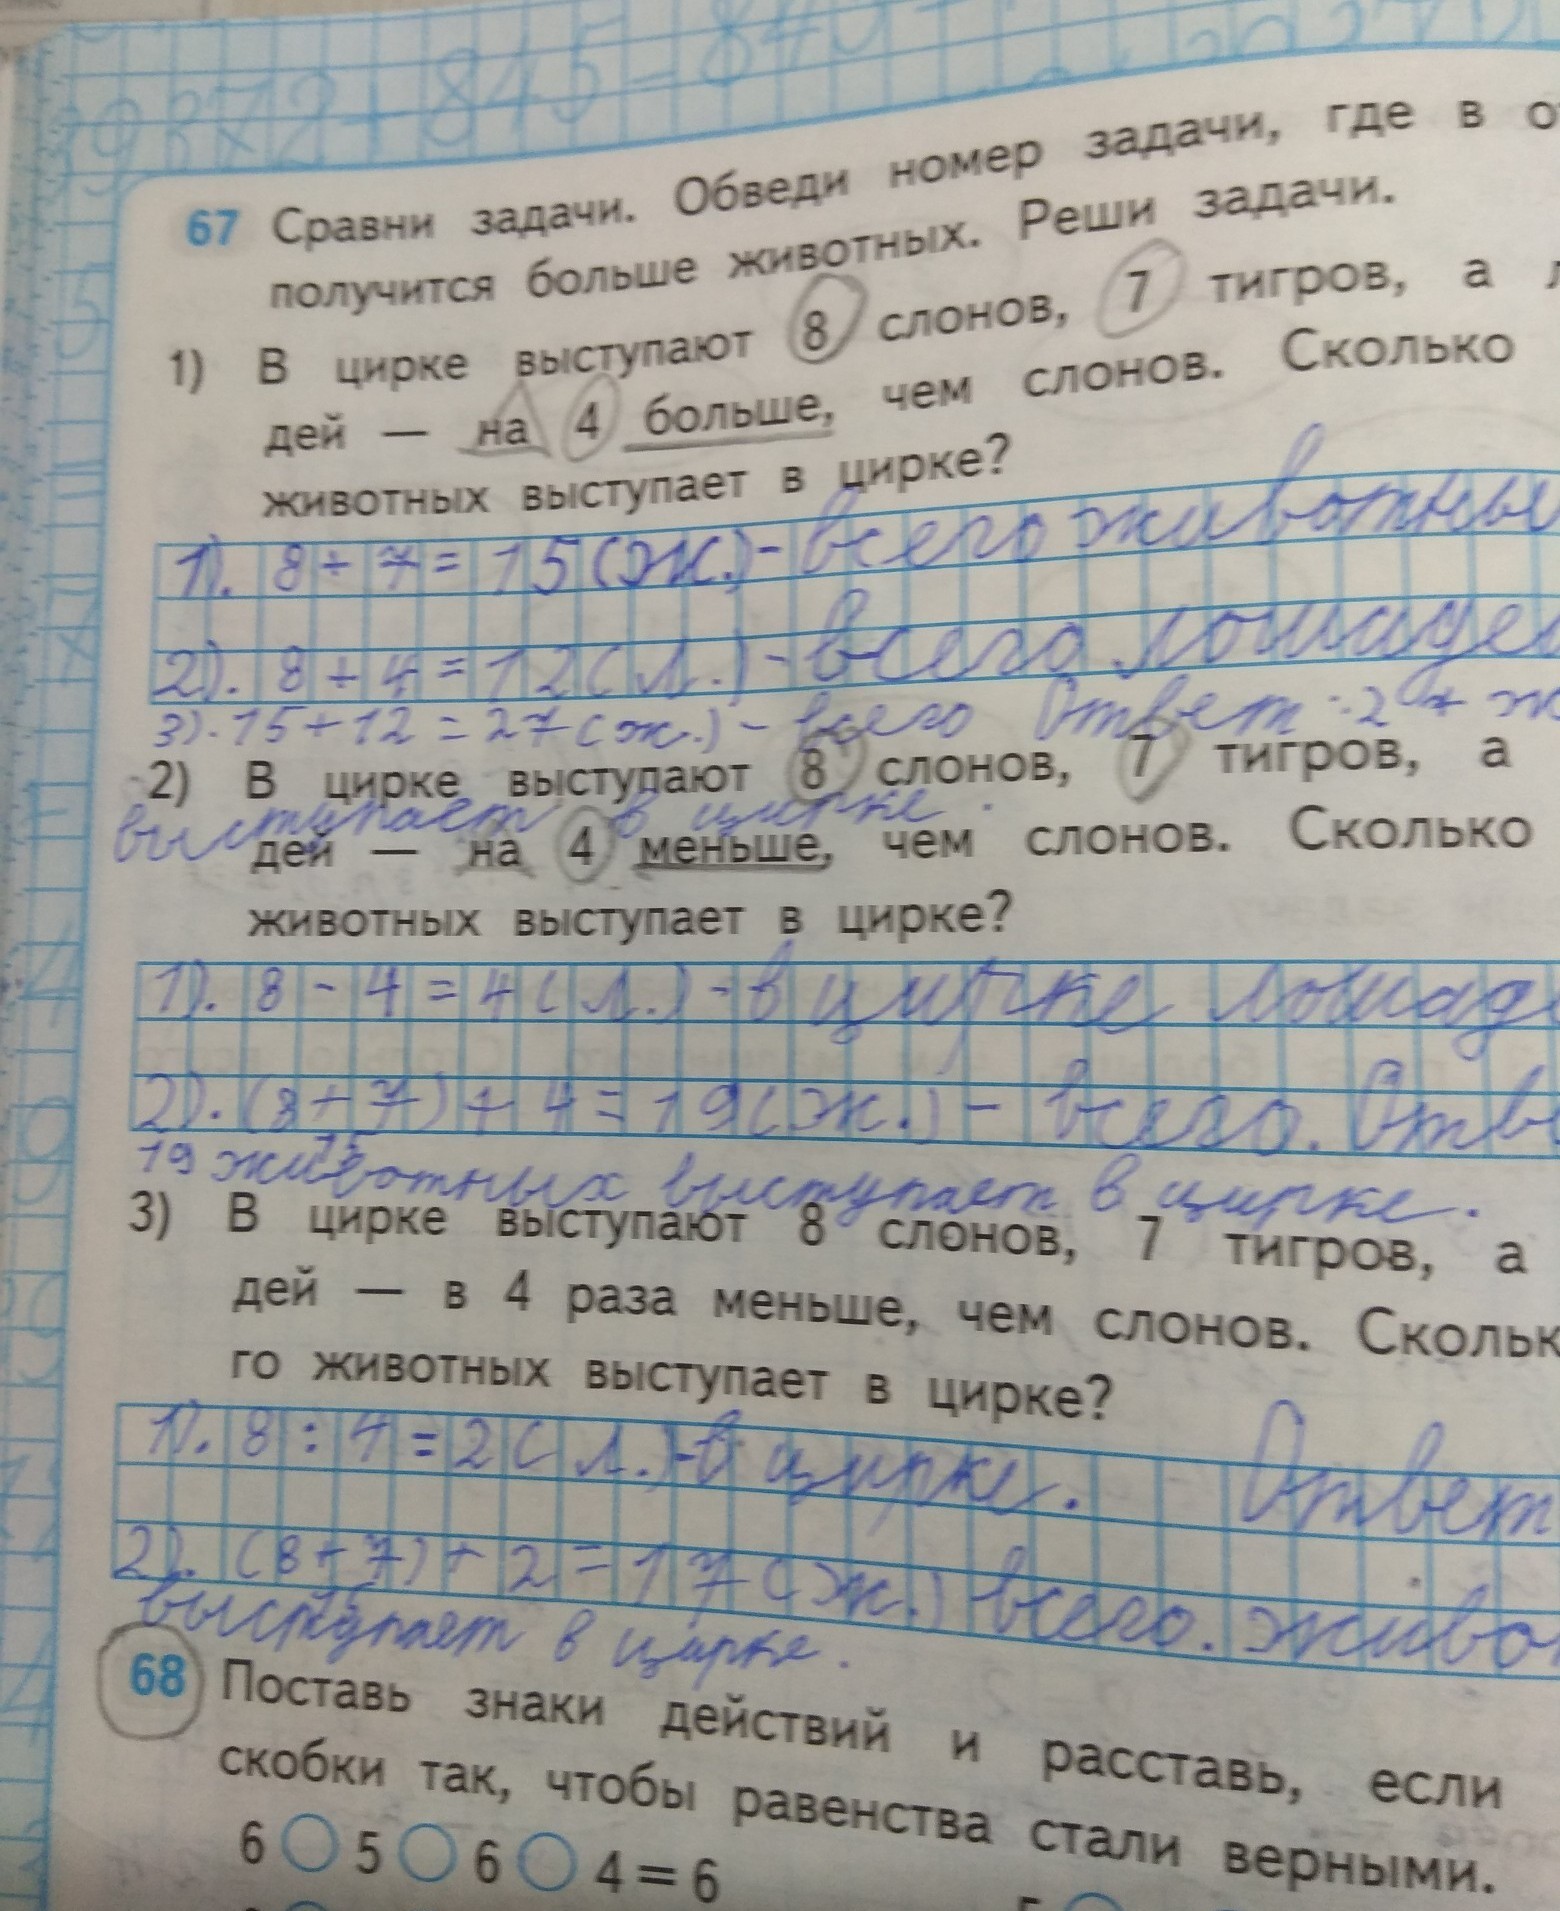 67 Сравни задачи. Обведи номер задачи, где в о
получится больше животных. Реши задачи.
1) В цирке выступают 8 слонов, 7 тигров, а л
дей — на 4 больше, чем слонов. Сколько
животных выступает в цирке?
1). 8 + 7 = 15 (ж.) - всего животны
2). 8 + 4 = 12 (л.) - всего лошадей
3). 15 + 12 = 27 (ж.) - всего Ответ: 27 ж
2) В цирке выступают 8 слонов, 7 тигров, а
выступает в цирке.
дей — на 4 меньше, чем слонов. Сколько
животных выступает в цирке?
1). 8 - 4 = 4 (л.) - в цирке лошаде
2). (8 + 7) + 4 = 19 (ж.) - всего. Отве
15
19 животных выступает в цирке.
3) В цирке выступают 8 слонов, 7 тигров, а
дей — в 4 раза меньше, чем слонов. Скольк
го животных выступает в цирке?
1). 8 : 4 = 2 (л.) - в цирке. Ответ
2). (8 + 7) + 2 = 17 (ж.) всего. живо
15
выступает в цирке.
68 Поставь знаки действий и расставь, если
скобки так, чтобы равенства стали верными.
6 ○ 5 ○ 6 ○ 4 = 6